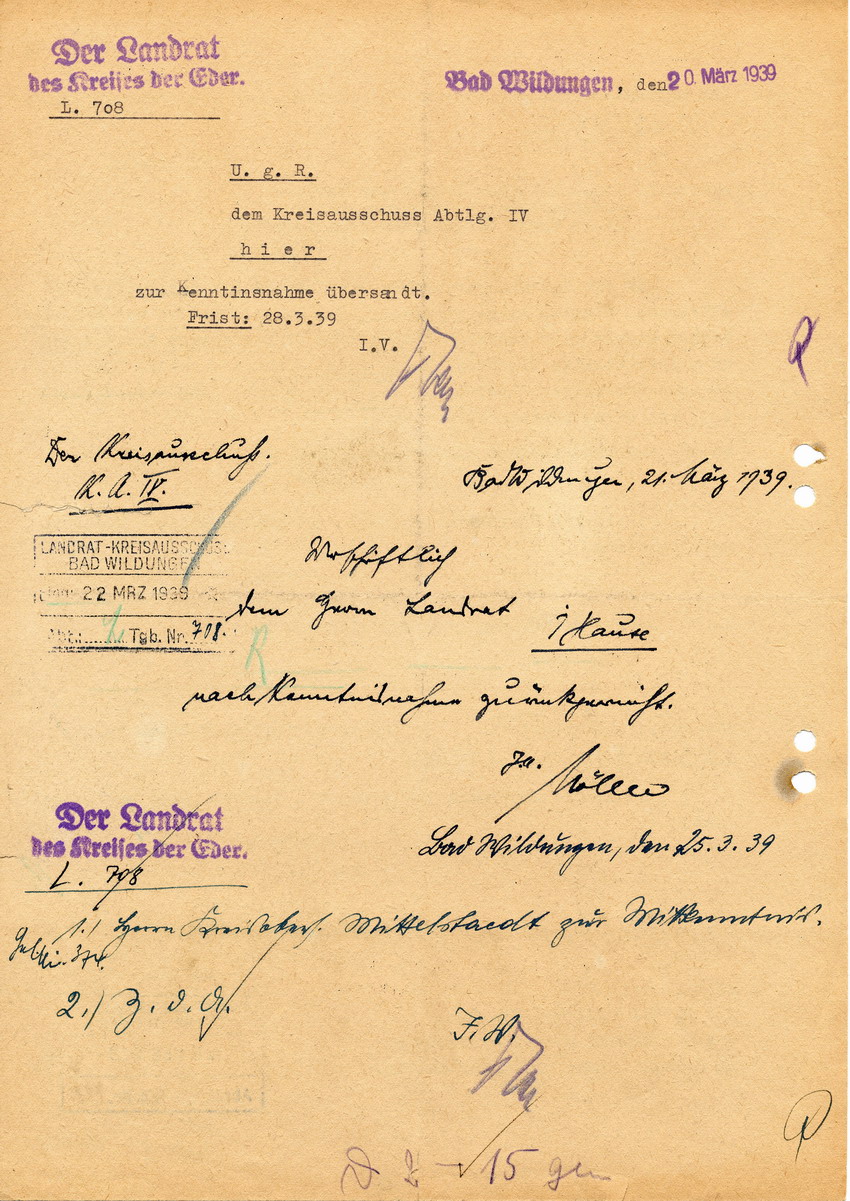 Der Landrat
des Kreises der Eder.
L. 708
Bad Wildungen, den 20. März 1939
U. g. R.
dem Kreisausschuss Abtlg. IV
hier
zur Kenntinsnahme übersandt.
Frist: 28.3.39
I.V.
Der Kreisausschuß.
K. A. IV.
Bad Wildungen, 21. März 1939.
LANDRAT-KREISAUSSCHUSS
BAD WILDUNGEN
Eing. 22 MRZ 1939
Abt.: Tgb. Nr. 708.
Urschriftlich
dem Herrn Landrat
i/Hause
R
nach Kenntnisnahme zurückgereicht.
J.A.
Der Landrat
des Kreises der Eder.
L. 708
Bad Wildungen, den 25.3.39
1.) Herrn Kreisobers. Mittelstaedt zur Mitkenntnis.
2.) Z. d. A.
I.V.
15